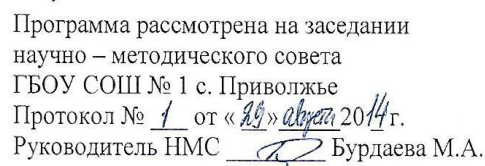 Программа рассмотрена на заседании
научно – методического совета
ГБОУ СОШ № 1 с. Приволжье
Протокол № 1 от « 29 » август 2014 г.
Руководитель НМС Бурдаева М.А.